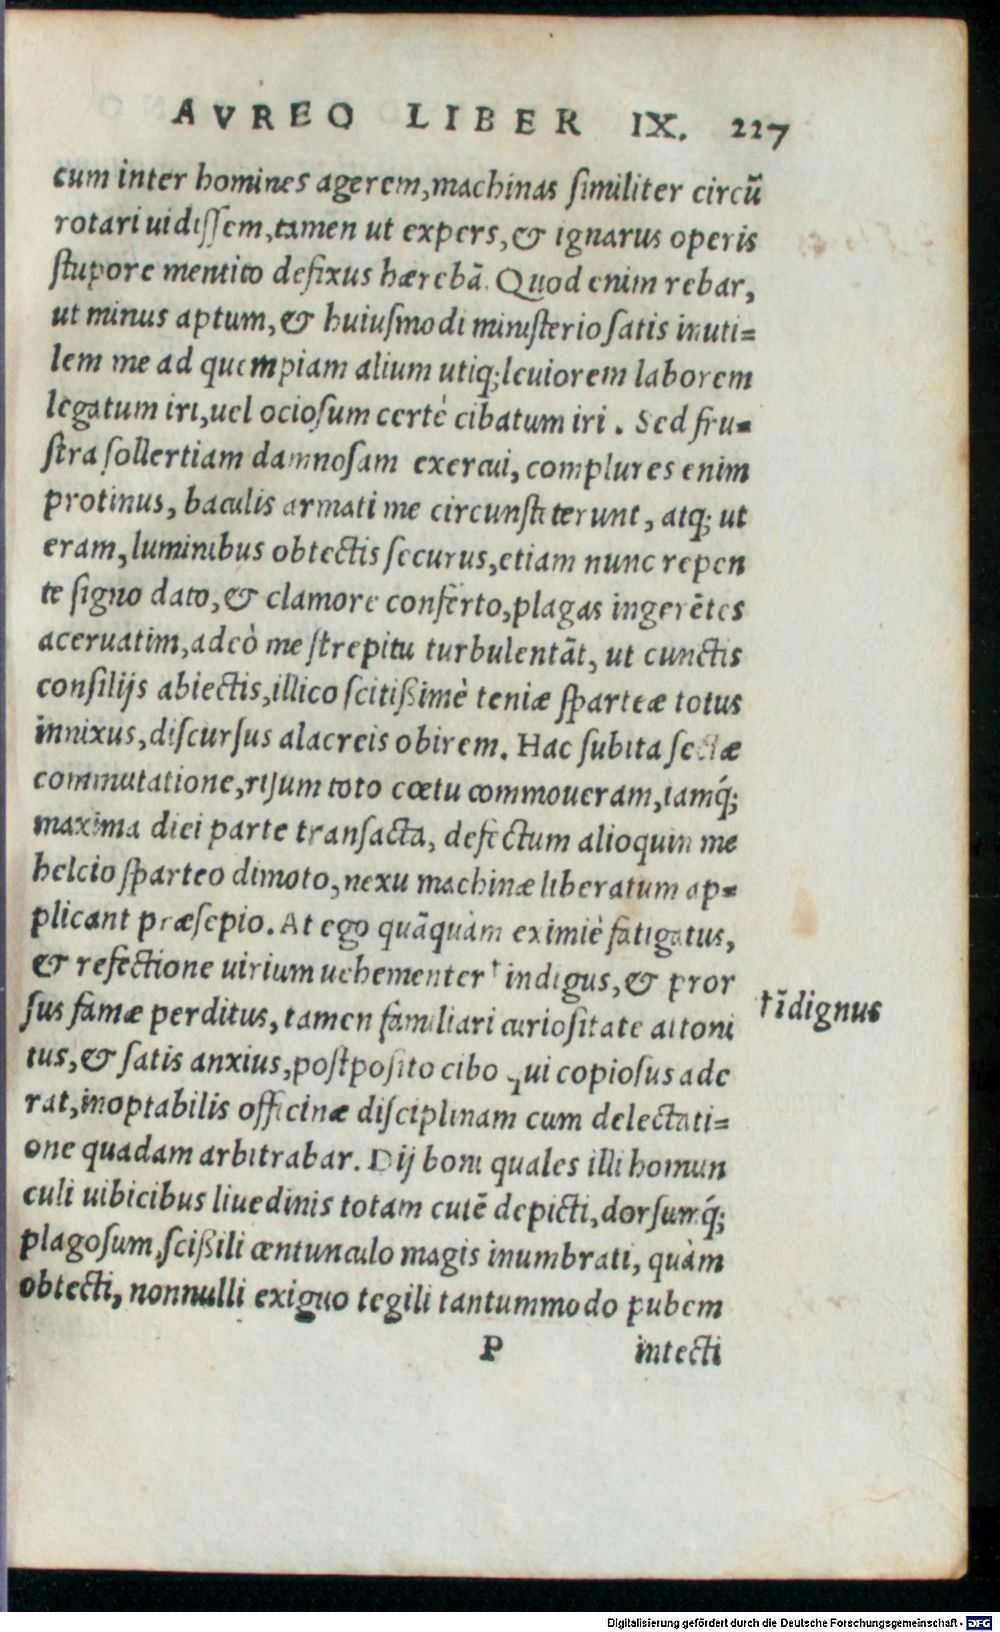 AVREO LIBER IX. 227
cum inter homines agerem, machinas ſimiliter circũ
rotari uidiſſem, tamen ut expers, & ignarus operis
ſtupore mentito defixus hærebã. Quod enim rebar,
ut minus aptum, & huiuſmodi miniſterio ſatis inuti=
lem me ad quempiam alium utiq; leuiorem laborem
legatum iri, uel ocioſum certè cibatum iri. Sed fru=
ſtra ſollertiam damnoſam exercui, complures enim
protinus, baculis armati me circunſteterunt, atq; ut
eram, luminibus obtectis ſecurus, etiam nunc repen
te ſigno dato, & clamore conferto, plagas ingerẽtes
aceruatim, adeò me ſtrepitu turbulentãt, ut cunctis
conſilijs abiectis, illico ſcitißimè teniæ ſparteæ totus
innixus, diſcurſus alacreis obirem. Hac ſubita ſectæ
commutatione, riſum toto cœtu commoueram, iamq́;
maxima diei parte tranſacta, defectum alioquin me
helcio ſparteo dimoto, nexu machinæ liberatum ap=
plicant præſepio. At ego quãquàm eximiè fatigatus,
& refectione uirium uehementer † indigus, & pror
ſus famæ perditus, tamen familiari curioſitate attoni
tus, & ſatis anxius, poſtpoſito cibo qui copioſus ade
rat, inoptabilis officinæ diſciplinam cum delectati=
one quadam arbitrabar. Dij boni quales illi homun
culi uibicibus liuedinis totam cutẽ depicti, dorſumq́;
plagoſum ſcißili centunculo magis inumbrati, quàm
obtecti, nonnulli exiguo tegili tantummodo pubem
P intecti
† ĩdignus
Digitalisierung gefördert durch die Deutsche Forschungsgemeinschaft - DFG